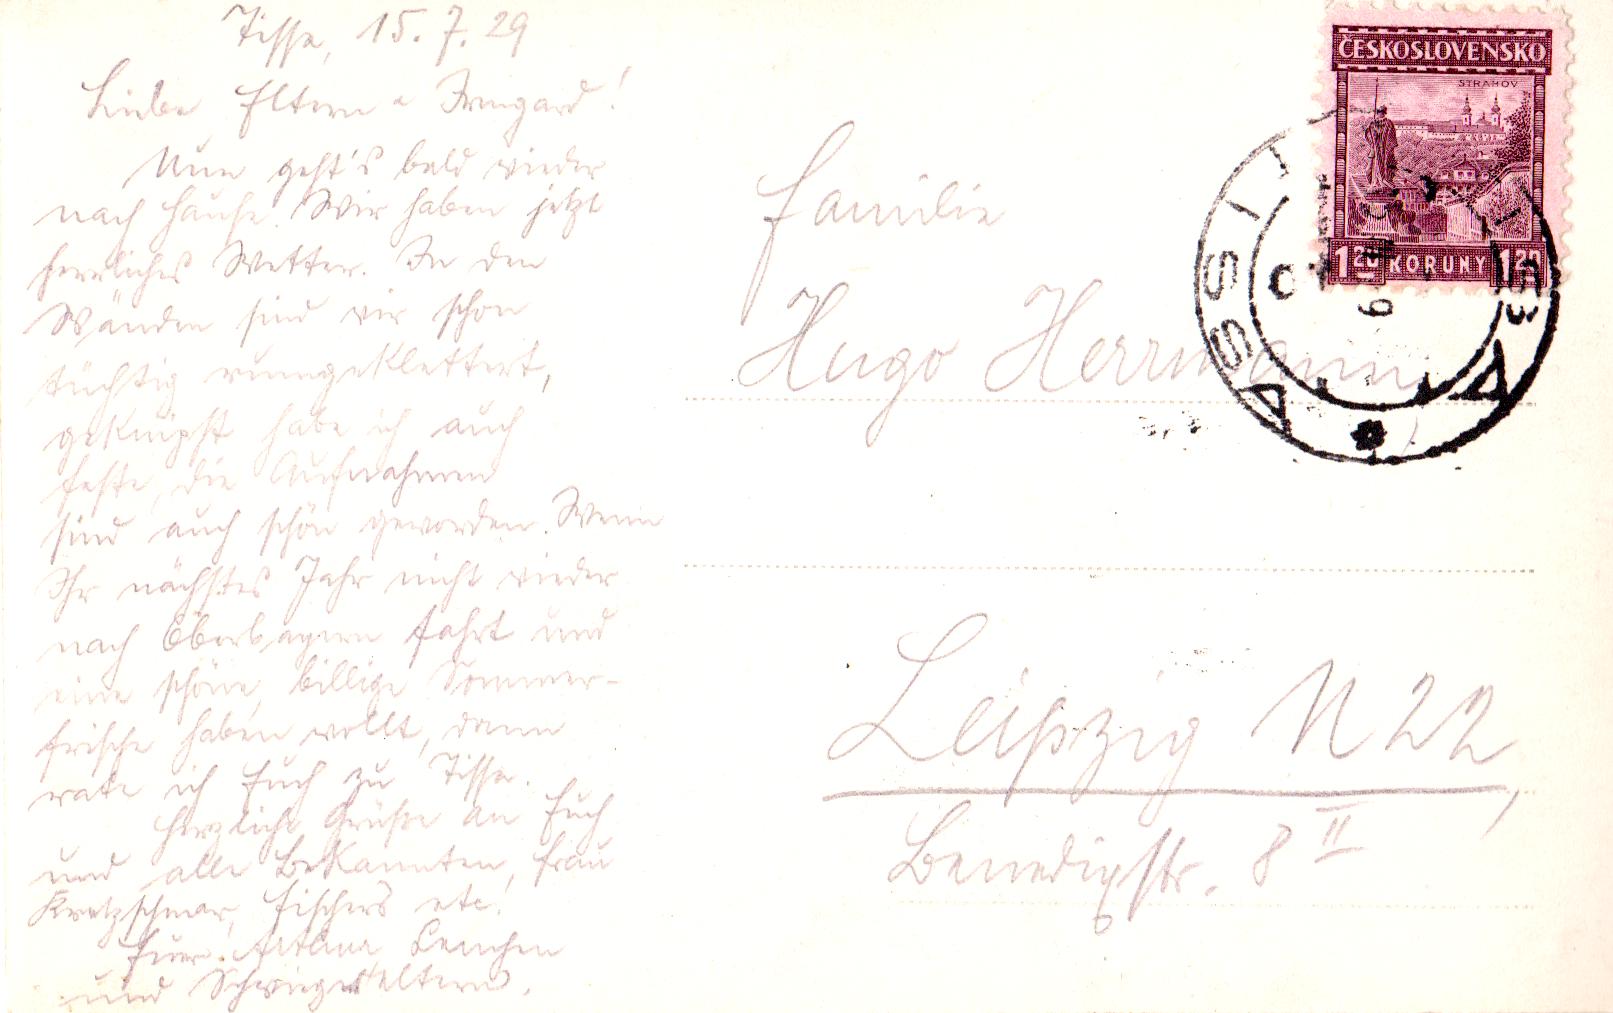 Tissa, 15. 7. 29
Liebe Eltern u Irmgard!
Nun geht's bald wieder
nach Hause. Wir haben jetzt
herrliches Wetter. In den
Wänden sind wir schon
tüchtig rumgeklettert,
geknipst habe ich auch
feste, die Aufnahmen
sind auch schön geworden. Wenn
Ihr nächstes Jahr nicht wieder
nach Oberbayern fahrt und
eine schöne, billige Sommer-
frische haben wollt, dann
rate ich Euch zu Tissa.
Herzliche Grüße an Euch
und alle Bekannten, Frau
Kretzschmar, Fischers etc.
Euer Lenchen
und Schwiegereltern.
ČESKOSLOVENSKO
STRAHOV
1 20 KORUNY 1 20
Familie
Hugo Herrmann
Leipzig N 22,
Benedixstr. 8 II